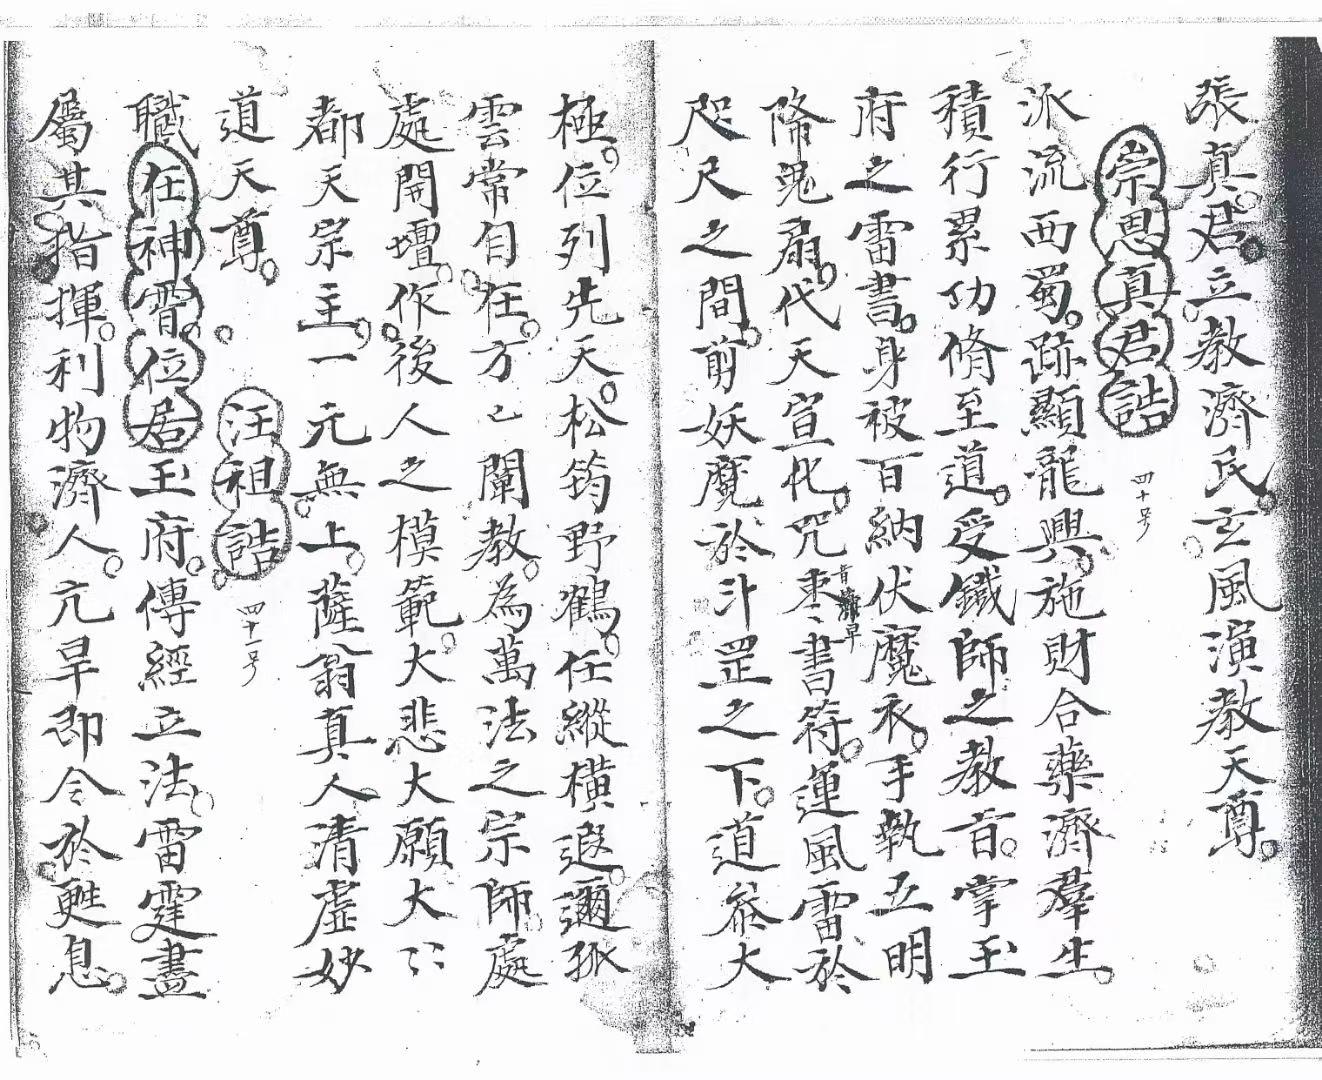 張真君。立教濟民。玄風演教天尊。
崇恩真君誥 四十号
派流西蜀。跡顯龍興。施財合藥濟羣生。
積行累功脩至道。受鐵師之教旨。掌玉
府之雷書。身被百納伏魔衣。手執五明
降鬼扇。代天宣化。咒棗書符。運風雷於
咫尺之間。剪妖魔於斗罡之下。道叅大
極。位列先天。松筠野鶴。任縱橫遐邇。孤
雲常自在。方亡闡教。為萬法之宗師。處
處開壇。作後人之模範。大悲大願大〻
都天宗主。一元無上。薩翁真人清虛妙
道天尊。
汪祖誥 四十一号
職任神霄位居玉府。傳經立法。雷霆盡
屬其指揮。利物濟人。亢旱即令於甦息。